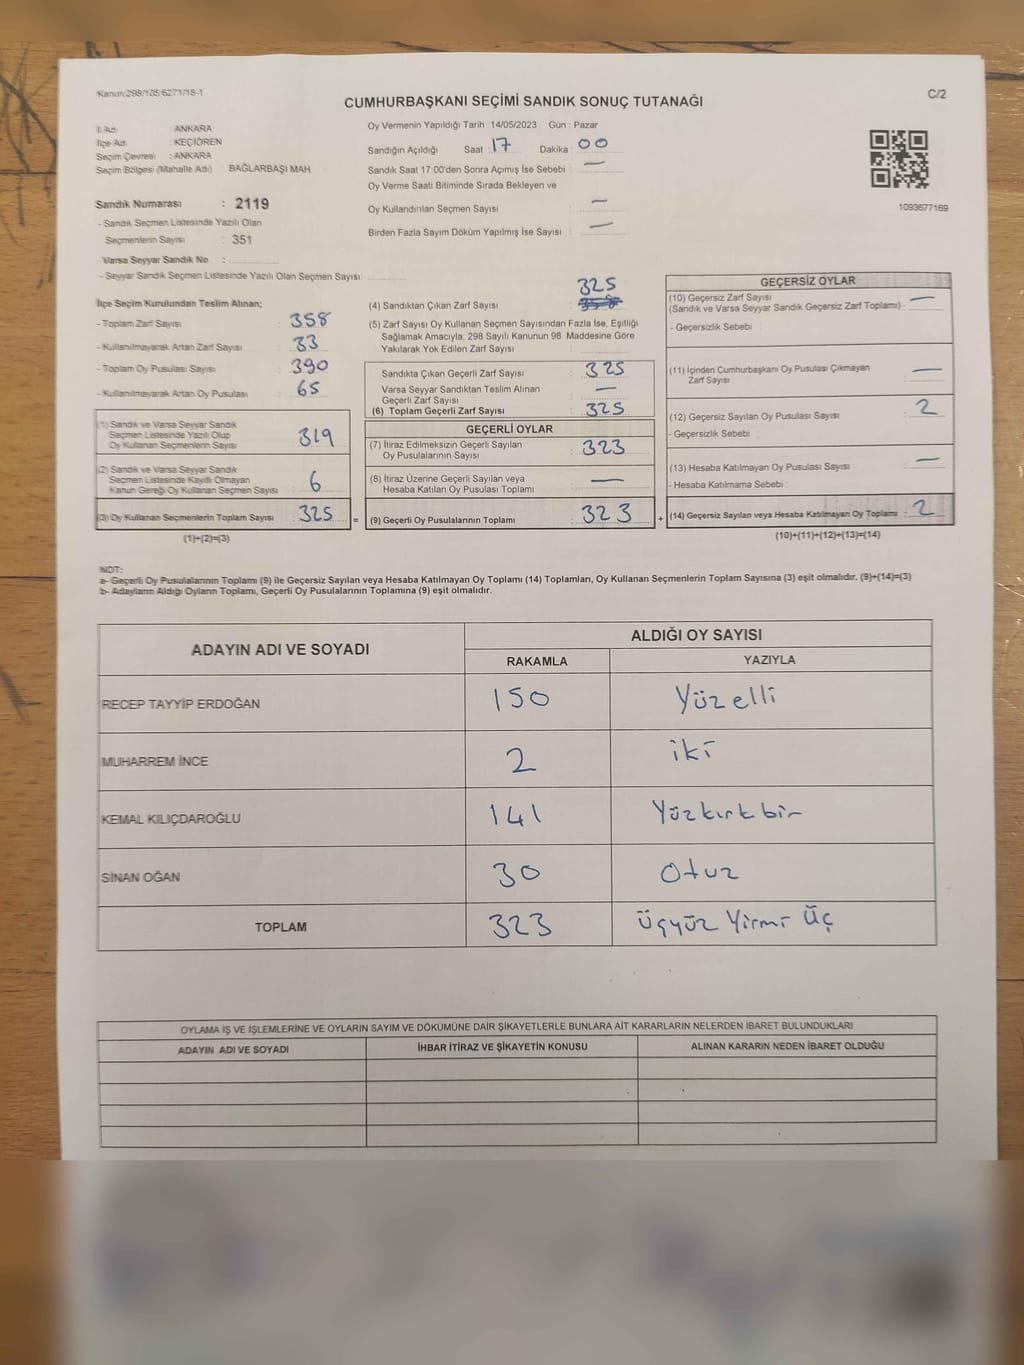 Kanun:298/105;6271/18-1
C/2
CUMHURBAŞKANI SEÇİMİ SANDIK SONUÇ TUTANAĞI
İl Adı : ANKARA
İlçe Adı : KEÇİÖREN
Seçim Çevresi : ANKARA
Seçim Bölgesi (Mahalle Adı) BAĞLARBAŞI MAH
Sandık Numarası : 2119
- Sandık Seçmen Listesinde Yazılı Olan
Seçmenlerin Sayısı : 351
Varsa Seyyar Sandık No :
- Seyyar Sandık Seçmen Listesinde Yazılı Olan Seçmen Sayısı:
Oy Vermenin Yapıldığı Tarih : 14/05/2023 Gün : Pazar
Sandığın Açıldığı Saat : 17 Dakika : 00
Sandık Saat 17:00'den Sonra Açımış İse Sebebi : —
Oy Verme Saati Bitiminde Sırada Bekleyen ve
Oy Kullandırılan Seçmen Sayısı : —
Birden Fazla Sayım Döküm Yapılmış İse Sayısı : —
1093677169
İlçe Seçim Kurulundan Teslim Alınan;
- Toplam Zarf Sayısı : 358
- Kullanılmayarak Artan Zarf Sayısı : 33
- Toplam Oy Pusulası Sayısı : 390
- Kullanılmayarak Artan Oy Pusulası : 65
(1) Sandık ve Varsa Seyyar Sandık
Seçmen Listesinde Yazılı Olup
Oy Kullanan Seçmenlerin Sayısı 319
(2) Sandık ve Varsa Seyyar Sandık
Seçmen Listesinde Kayıtlı Olmayan
Kanun Gereği Oy Kullanan Seçmen Sayısı 6
(3) Oy Kullanan Seçmenlerin Toplam Sayısı : 325
(1)+(2)=(3)
325
(4) Sandıktan Çıkan Zarf Sayısı : 358
(5) Zarf Sayısı Oy Kullanan Seçmen Sayısından Fazla İse, Eşitliği
Sağlamak Amacıyla, 298 Sayılı Kanunun 98. Maddesine Göre
Yakılarak Yok Edilen Zarf Sayısı :
Sandıkta Çıkan Geçerli Zarf Sayısı : 325
Varsa Seyyar Sandıktan Teslim Alınan
Geçerli Zarf Sayısı : —
(6) Toplam Geçerli Zarf Sayısı : 325
GEÇERLİ OYLAR
(7) İtiraz Edilmeksizin Geçerli Sayılan
Oy Pusulalarının Sayısı : 323
(8) İtiraz Üzerine Geçerli Sayılan veya
Hesaba Katılan Oy Pusulası Toplamı : —
= (9) Geçerli Oy Pusulalarının Toplamı : 323
GEÇERSİZ OYLAR
(10) Geçersiz Zarf Sayısı
(Sandık ve Varsa Seyyar Sandık Geçersiz Zarf Toplamı) : —
- Geçersizlik Sebebi :
(11) İçinden Cumhurbaşkanı Oy Pusulası Çıkmayan
Zarf Sayısı : —
(12) Geçersiz Sayılan Oy Pusulası Sayısı : 2
- Geçersizlik Sebebi :
(13) Hesaba Katılmayan Oy Pusulası Sayısı : —
- Hesaba Katılmama Sebebi :
+ (14) Geçersiz Sayılan veya Hesaba Katılmayan Oy Toplamı : 2
(10)+(11)+(12)+(13)=(14)
NOT:
a- Geçerli Oy Pusulalarının Toplamı (9) ile Geçersiz Sayılan veya Hesaba Katılmayan Oy Toplamı (14) Toplamları, Oy Kullanan Seçmenlerin Toplam Sayısına (3) eşit olmalıdır. (9)+(14)=(3)
b- Adayların Aldığı Oyların Toplamı, Geçerli Oy Pusulalarının Toplamına (9) eşit olmalıdır.
ADAYIN ADI VE SOYADI ALDIĞI OY SAYISI
RAKAMLA YAZIYLA
RECEP TAYYİP ERDOĞAN 150 Yüzelli
MUHARREM İNCE 2 iki
KEMAL KILIÇDAROĞLU 141 Yüzkırkbir
SİNAN OĞAN 30 Otuz
TOPLAM 323 Üçyüz Yirmi Üç
OYLAMA İŞ VE İŞLEMLERİNE VE OYLARIN SAYIM VE DÖKÜMÜNE DAİR ŞİKAYETLERLE BUNLARA AİT KARARLARIN NELERDEN İBARET BULUNDUKLARI
ADAYIN ADI VE SOYADI İHBAR İTİRAZ VE ŞİKAYETİN KONUSU ALINAN KARARIN NEDEN İBARET OLDUĞU